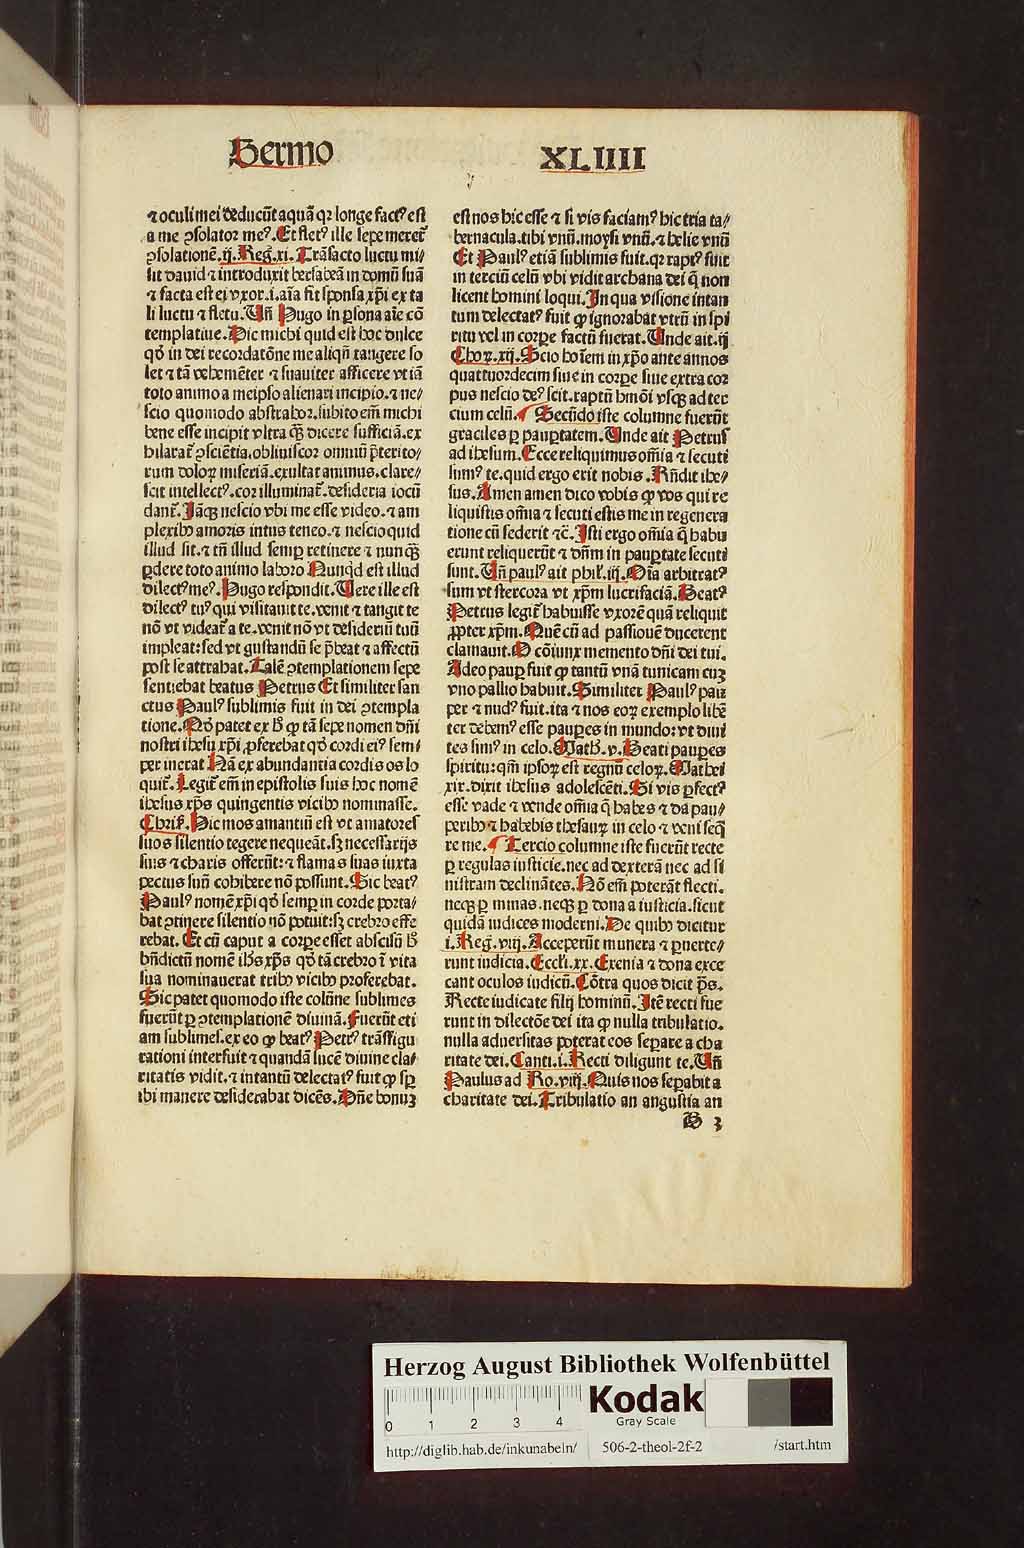 Sermo XLIIII
⁊ oculi mei deducūt aquā qꝛ longe factꝰ est
a me ꝯsolator meꝰ. Et fletꝰ ille sepe meret᷑
ꝯsolationē. ij. Reg. xi. Trāsacto luctu mi⸗
sit dauid ⁊ introduxit bersabeā in domū suā
⁊ facta est ei vxor. i. aīa fit sponsa xp̄i ex ta
li luctu ⁊ fletu. Vn̄ Hugo in ꝑsona aīe cō
templatiue. Dic michi quid est hoc dulce
qđ in dei recordatōne me aliqn̄ tangere so
let ⁊ tā vehemēter ⁊ suauiter afficere vt iā
toto animo a meipso alienari incipio. ⁊ ne⸗
scio quomodo abstrahor. subito em̄ michi
bene esse incipit vltra qꝫ̄ dicere sufficiā. ex
hilarat᷑ ꝯsciētia. obliuiscor omniū p̄terito⸗
rum doloꝝ miseriā. exultat animus. clare⸗
scit intellectꝰ. cor illuminat᷑. desideria iocū
dant᷑. Jāqꝫ nescio vbi me esse video. ⁊ am
plexibꝰ amoris intus teneo. ⁊ nescio quid
illud sit. ⁊ tn̄ illud semꝑ retinere ⁊ nunqꝫ̄
ꝑdere toto animo laboro Nunqđ est illud
dilectꝰ meꝰ. Hugo respondit. Vere ille est
dilectꝰ tuꝰ qui visitauit te. venit ⁊ tangit te
nō vt videat᷑ a te. venit nō vt desideriū tuū
impleat: sed vt gustandū se p̄beat ⁊ affectū
post se attrahat. Talē ꝯtemplationem sepe
sentiebat beatus Petrus Et similiter san
ctus Paulꝰ sublimis fuit in dei ꝯtempla
tione. Qđ patet ex ħ ꝙ tā sepe nomen dn̄i
nostri ihesu xp̄i ꝓferebat qđ cordi eiꝰ sem⸗
per inerat Nā ex abundantia cordis os lo
quit᷑. Legit᷑ em̄ in epistolis suis hoc nomē
ihesus xp̄s quingentis vicibꝰ nominasse.
Chriꝭ. Hic mos amantiū est vt amatores
suos silentio tegere nequeāt. sꝫ necessarijs
suis ⁊ charis offerūt: ⁊ flamas suas iuxta
pectus suū cohibere nō possunt. Sic beatꝰ
Paulꝰ nomē xp̄i qđ semꝑ in corde porta⸗
bat ꝯtinere silentio nō potuit: sꝫ crebro effe
rebat. Et cū caput a corꝑe esset abscisū ħ
bn̄dictū nomē ihūs xp̄s qđ tā crebro ī vita
sua nominauerat tribꝰ vicibꝰ proferebat.
Sic patet quomodo iste colūne sublimes
fuerūt ꝑ ꝯtemplationē diuinā. Fuerūt eti
am sublimes. ex eo ꝙ beatꝰ Petrꝰ trāsfigu
rationi interfuit ⁊ quandā lucē diuine cla⸗
ritatis vidit. ⁊ intantū delectatꝰ fuit ꝙ sꝑ
ibi manere desiderabat dicēs. Dn̄e bonuꝫ
est nos hic esse ⁊ si vis faciamꝰ hic tria ta⸗
bernacula. tibi vnū. moysi vnū. ⁊ helie vnū
Et Paulꝰ etiā sublimis fuit. qꝛ raptꝰ fuit
in terciū celū vbi vidit archana dei q̄ non
licent homini loqui. In qua visione intan
tum delectatꝰ fuit ꝙ ignorabat vtrū in spi
ritu vel in corꝑe factū fuerat. Unde ait. ij
Choꝝ. xij. Scio hoīem in xp̄o ante annos
quattuordecim siue in corꝑe siue extra cor
pus nescio deꝰ scit. raptū hmōi vsqꝫ ad ter
cium celū. Secūdo iste columne fuerūt
graciles ꝑ pauꝑtatem. Unde ait Petrus
ad ihesum. Ecce reliquimus om̄ia ⁊ secuti
sumꝰ te. quid ergo erit nobis. Rn̄dit ihe⸗
sus. Amen amen dico vobis ꝙ vos qui re
liquistis om̄ia ⁊ secuti estis me in regenera
tione cū sederit ⁊c̄. Isti ergo om̄ia q̄ habu
erunt reliquerūt ⁊ dn̄m in pauꝑtate secuti
sunt. Vn̄ paulꝰ ait phił. iij. Oīa arbitratꝰ
sum vt stercora vt xp̄m lucrifaciā. Beatꝰ
Petrus legit᷑ habuisse vxorē quā reliquit
ꝓpter xp̄m. Quē cū ad passionē ducerent
clamauit. O cōiunx memento dn̄i dei tui.
Adeo pauꝑ fuit ꝙ tantū vnā tunicam cuꝫ
vno pallio habuit. Similiter Paulꝰ pau
per ⁊ nudꝰ fuit. ita ⁊ nos eoꝝ exemplo libē
ter debemꝰ esse pauꝑes in mundo: vt diui
tes simꝰ in celo. Math. v. Beati pauꝑes
spiritu: qm̄ ipsoꝝ est regnū celoꝝ. Mathei
xix. dixit ihesus adolescēti. Si vis ꝑfectꝰ
esse vade ⁊ vende om̄ia q̄ habes ⁊ da pau⸗
peribꝰ ⁊ habebis thesauꝝ in celo ⁊ veni seq̄
re me. Tercio columne iste fuerūt recte
ꝑ regulas iusticie. nec ad dexterā nec ad si
nistram declinātes. Nō em̄ poterāt flecti.
neqꝫ ꝑ minas. neqꝫ ꝑ dona a iusticia. sicut
quidā iudices moderni. De quibꝰ dicitur
i. Reg. viij. Acceperūt munera ⁊ ꝑuerte⸗
runt iudicia. Eccli. xx. Exenia ⁊ dona exce
cant oculos iudicū. Cōtra quos dicit p̄s.
Recte iudicate filij hominū. Itē recti fue
runt in dilectōe dei ita ꝙ nulla tribulatio.
nulla aduersitas poterat eos seꝑare a cha
ritate dei. Canti. i. Recti diligunt te. Vn̄
Paulus ad Ro. viij. Quis nos seꝑabit a
charitate dei. Tribulatio an angustia an
B 3
Herzog August Bibliothek Wolfenbüttel
0 1 2 3 4
Kodak
Gray Scale
http://diglib.hab.de/inkunabeln/ 506-2-theol-2f-2 /start.htm